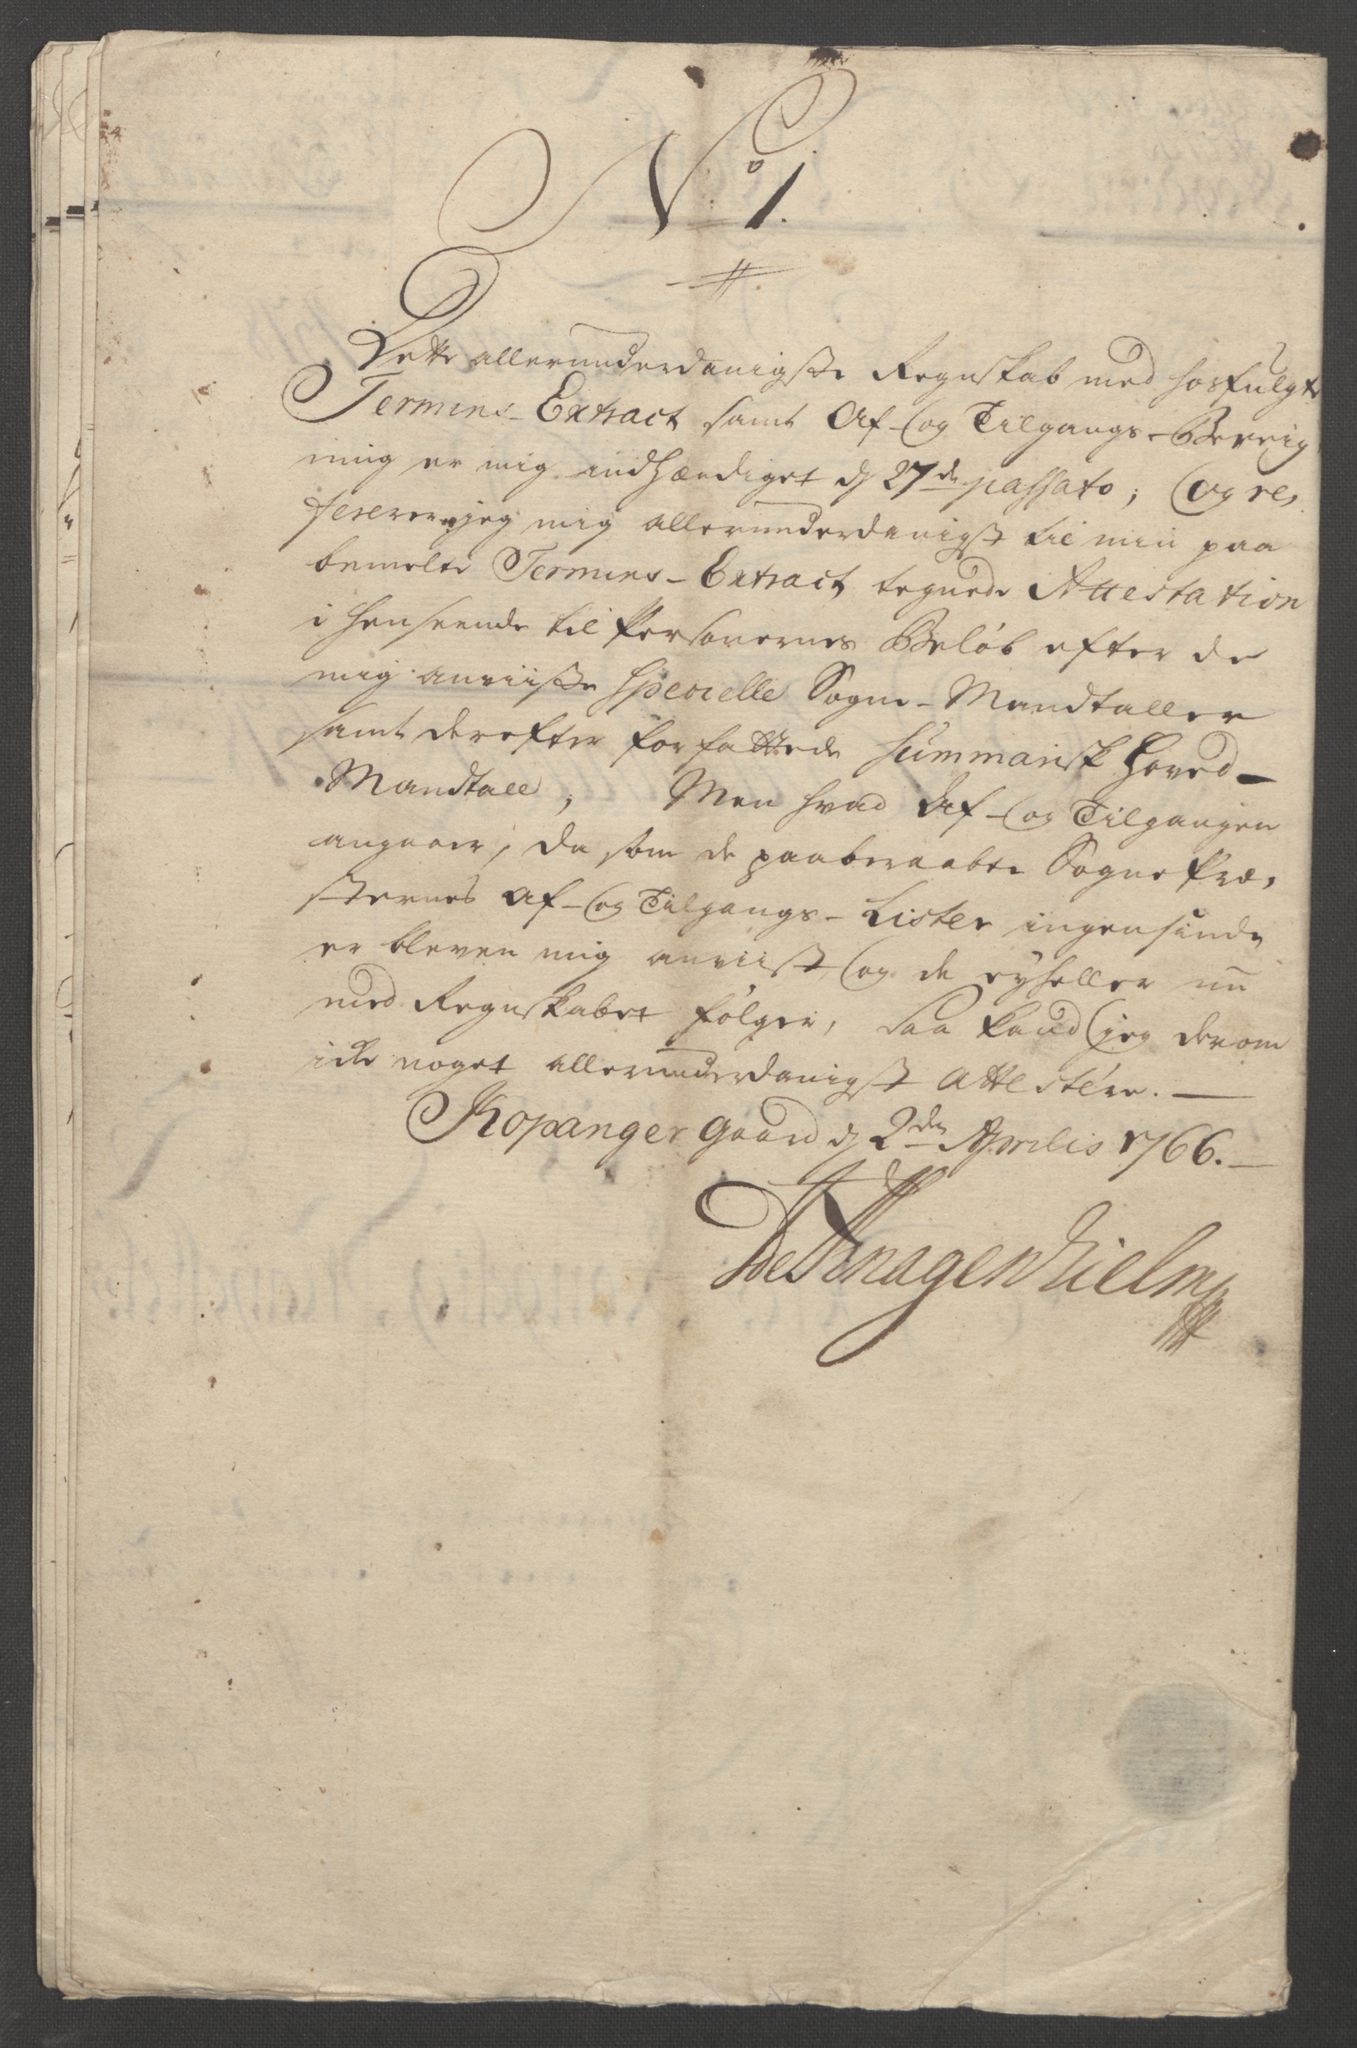 No 1.
Dette allerunderdanigste Regnskab med hosfulgte
Termins-Extract samt Af- og Tilgangs-Bereig,
ning er mig indhændiget d 27de passato; og re,
fererer jeg mig allerunderdanigst til min paa
bemelte Termins-Extract tegnede Attestation
i henseende til Personernes Beløb efter de
mig anviiste specielle Sogne-Mandtaller
samt derefter forfattede Summarisk Hoved-
Mandtall; Men hvad Af- og Tilgangen
angaaer, da som de paaberaabte Sogne Præ,
sternes Af- og Tilgangs-Lister ingensinde
er bleven mig anviist, og de ey heller nu
med Regnskabet følger, saa kand jeg derom
icke noget allerunderdanigst attestere.
Kopanger Gaard d 2den Aprilis 1766.
De Knagenhielm